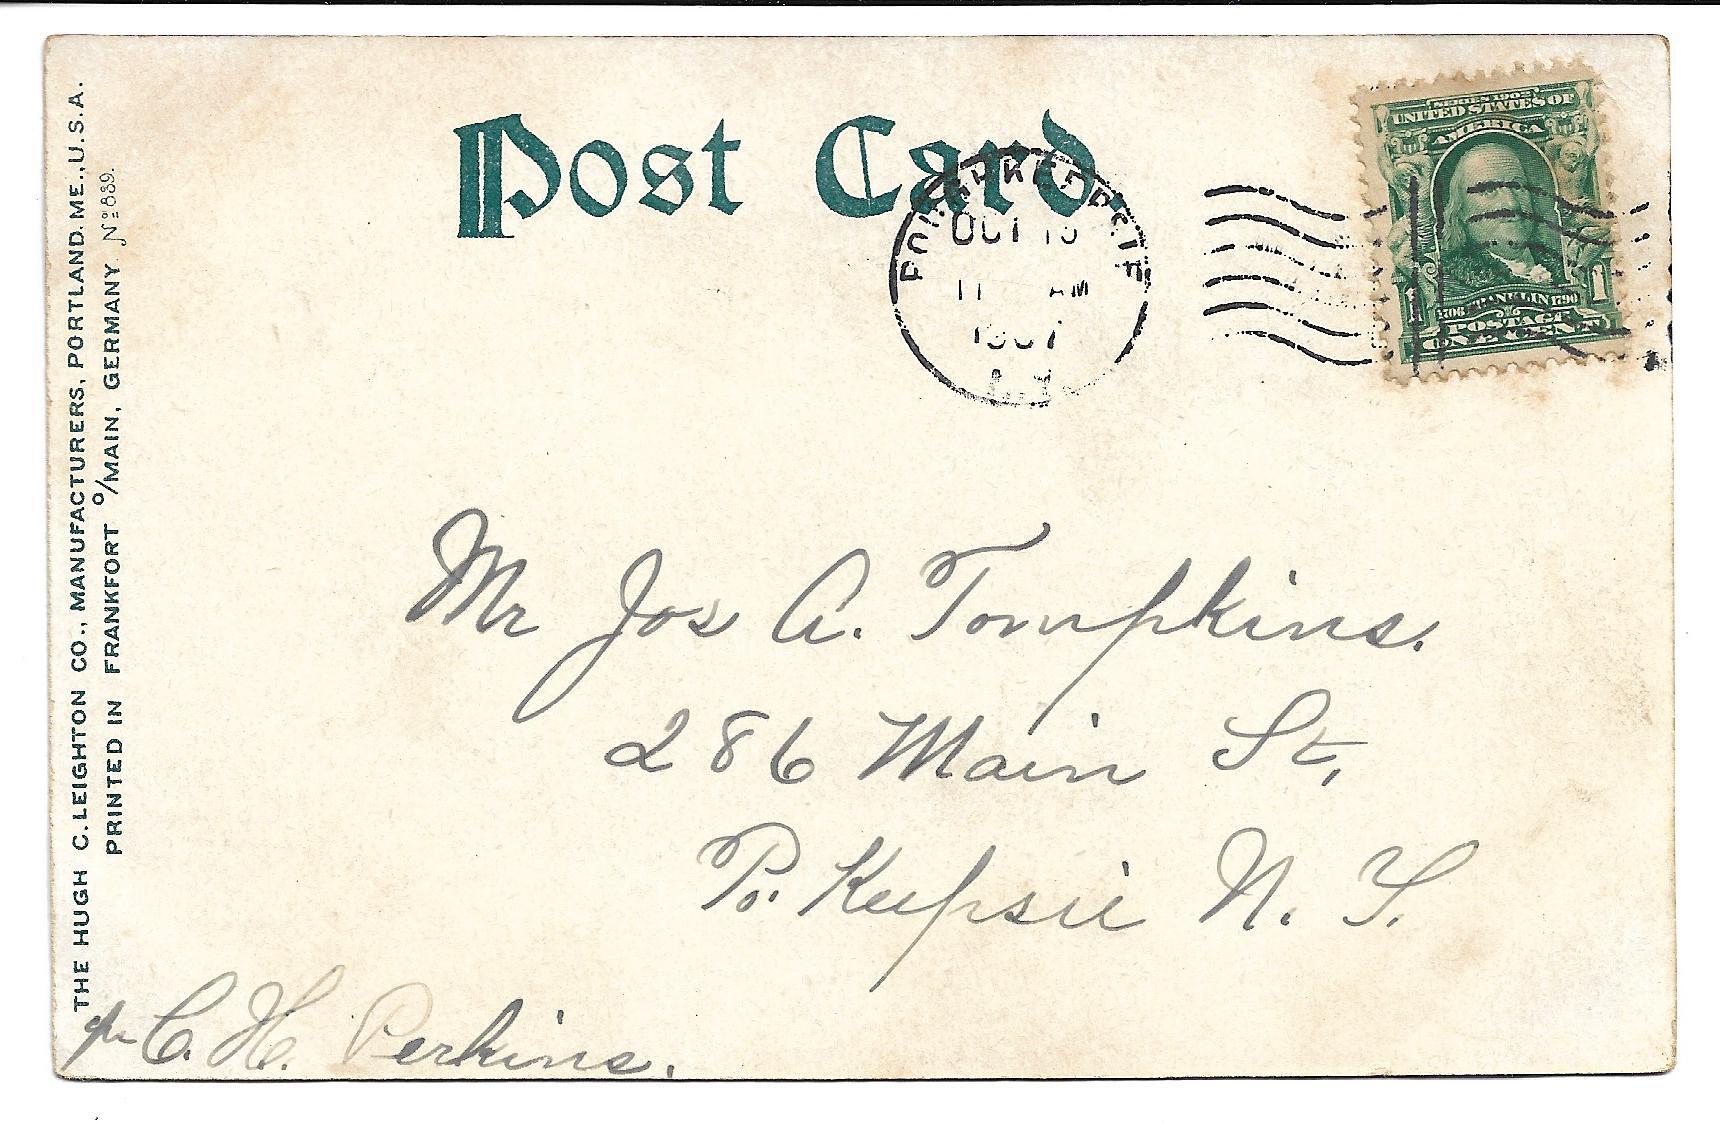 Post Card.
POUGHKEEPSIE
OCT
11 AM
1907
N.Y.
SERIES 1902
UNITED STATES OF
AMERICA
1 1
1706 FRANKLIN 1790
POSTAGE
ONE CENT
Mr Jos A. Tompkins.
286 Main St,
Po. Keepsie N. Y.
pr C. H. Perkins.
THE HUGH C. LEIGHTON CO., MANUFACTURERS, PORTLAND, ME., U.S.A.
PRINTED IN FRANKFORT O/MAIN, GERMANY. Nº 889.